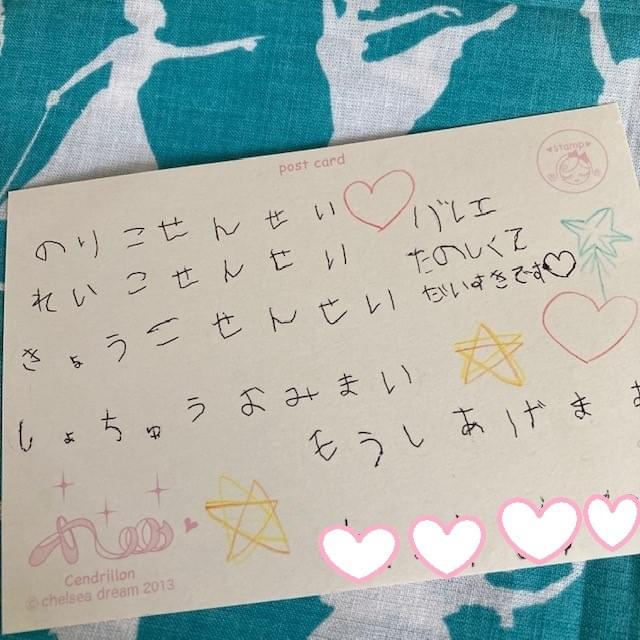 post card
★stamp★
のりこせんせい♡
れいこせんせい
きょうこせんせい
バレエ
たのしくて
だいすきです♡
しょちゅうおみまい
もうしあげま
Cendrillon
© chelsea dream 2013